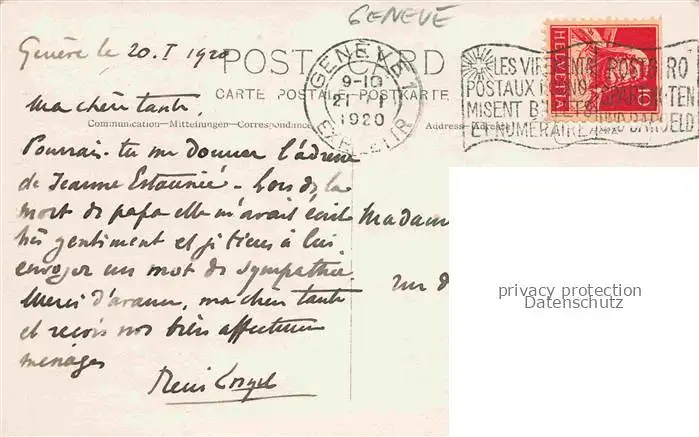 GENEVE
Genève le 20.I 1920
POST CARD
CARTE POSTALE - POSTKARTE
Communication—Mitteilungen—Correspondance
Address—Adresse
GENÈVE 1
9-10
21. I
1920
EXP. LETTR.
HELVETIA
10
LES VIREMENTS
POSTAUX
BILLETS
ET NUMÉRAIRE
POSTGIRO
BARGELD
Ma chère tante,
Pourrais-tu me donner l'adresse
de Jeanne Estaunié - Lors de la
mort de papa elle m'avait écrit
très gentiment et je tiens à lui
envoyer un mot de sympathie.
Merci d'avance, ma chère tante
et reçois nos bien affectueux
ménages
René
Madame
rue d
privacy protection
Datenschutz